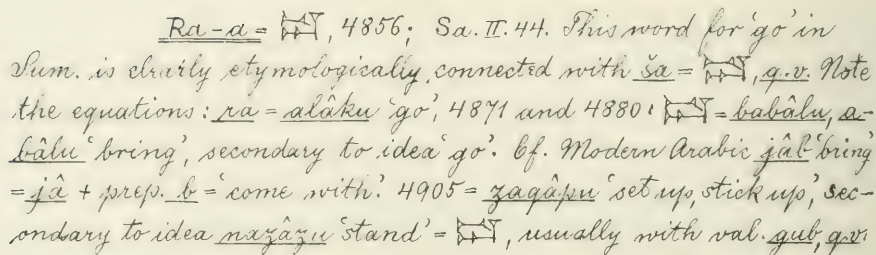 Ra-a = 𒁺, 4856; Sa. II. 44. This word for 'go' in
Sum. is clearly etymologically connected with ša = 𒁺, q.v. Note
the equations: ra = alâku 'go', 4871 and 4880: 𒁺 = babâlu, a-
bâlu 'bring', secondary to idea 'go'. Cf. Modern Arabic jâb 'bring'
= jâ + prep. b = 'come with'. 4905 = zaqâpu 'set up, stick up', sec-
ondary to idea nazâzu 'stand' = 𒁺, usually with val. gub, q.v.